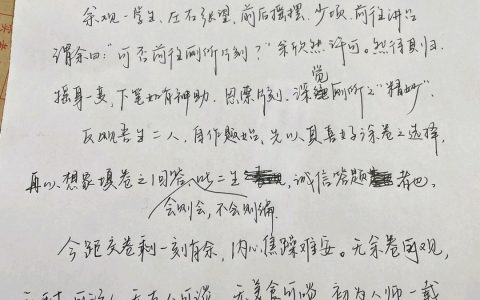 余观一学生，左右张望，前后摇摆，少顷，前往讲台
谓余曰："可否前往厕所片刻？"余欣然许可。然待其归，
摇身一变，下笔如有神助，思索片刻，深觉厕所之"精妙"。
反观吾生二人，自作题始，先以真喜好涂卷之选择，
再以想象填卷之回答，此二生，诚信答题者也，
会则会，不会则编
今距交卷剩一刻有余，内心焦躁难安。无余卷可观，
无美食可尝，初为人师一载